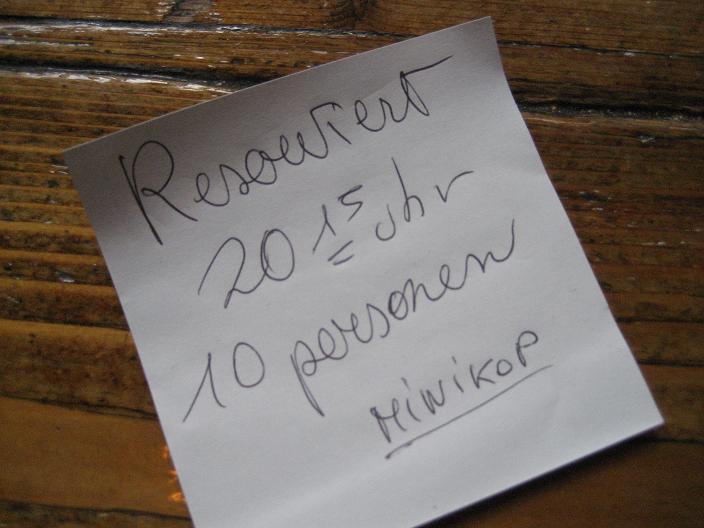 Resowiert
20 15 Uhr
10 personen
MiNiKOP